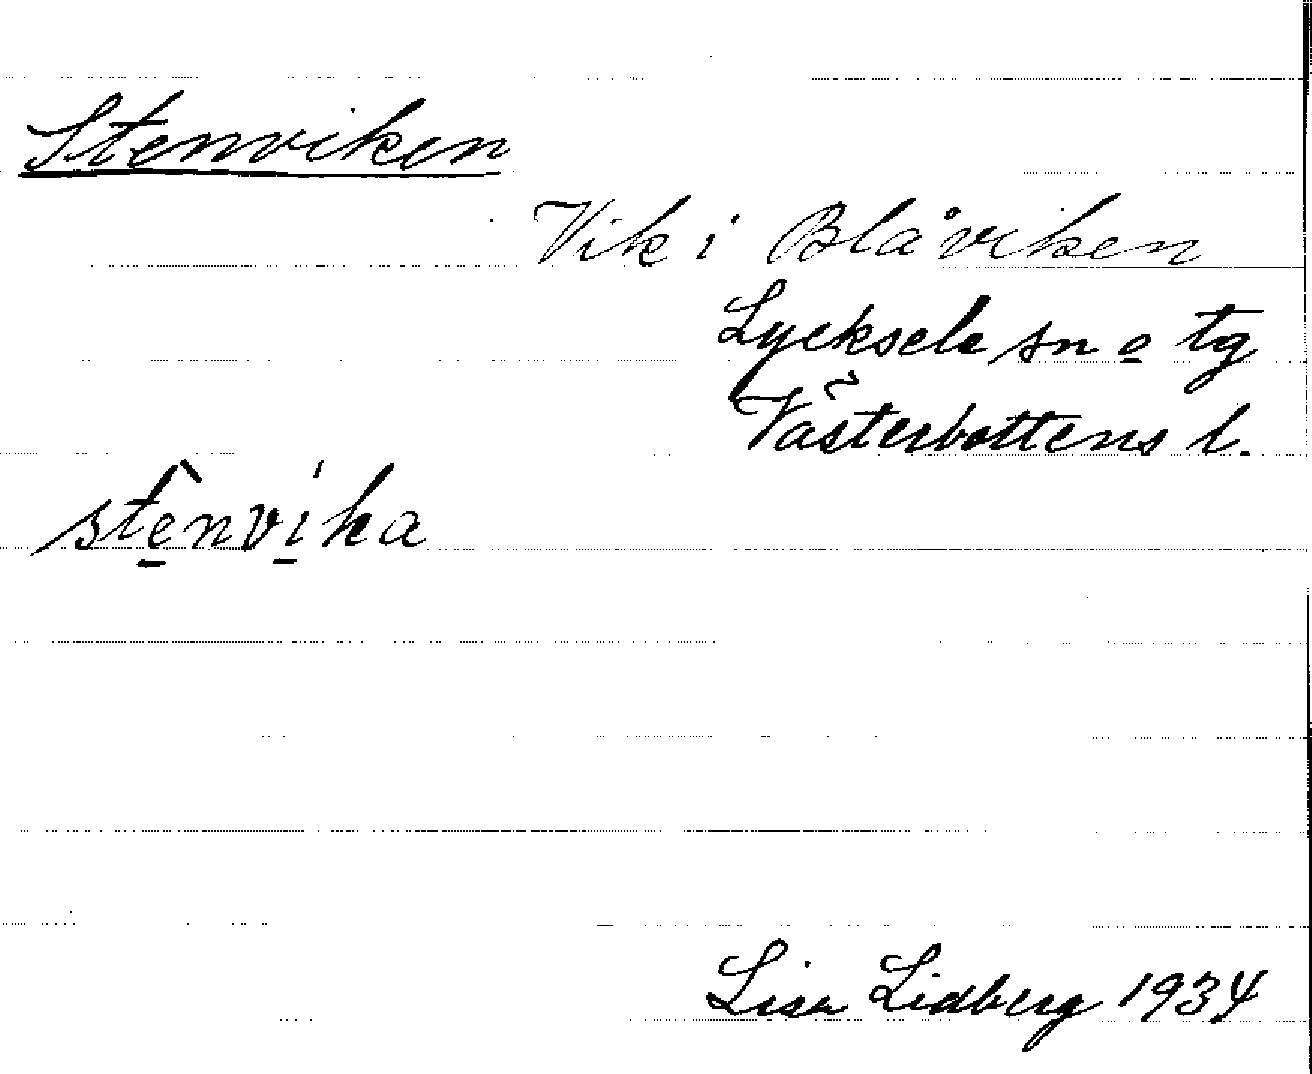 Stenviken
Vik i Blåviken
Lycksele sn o tg
Västerbottens l.
stènvíka
Lisa Lidberg 1934